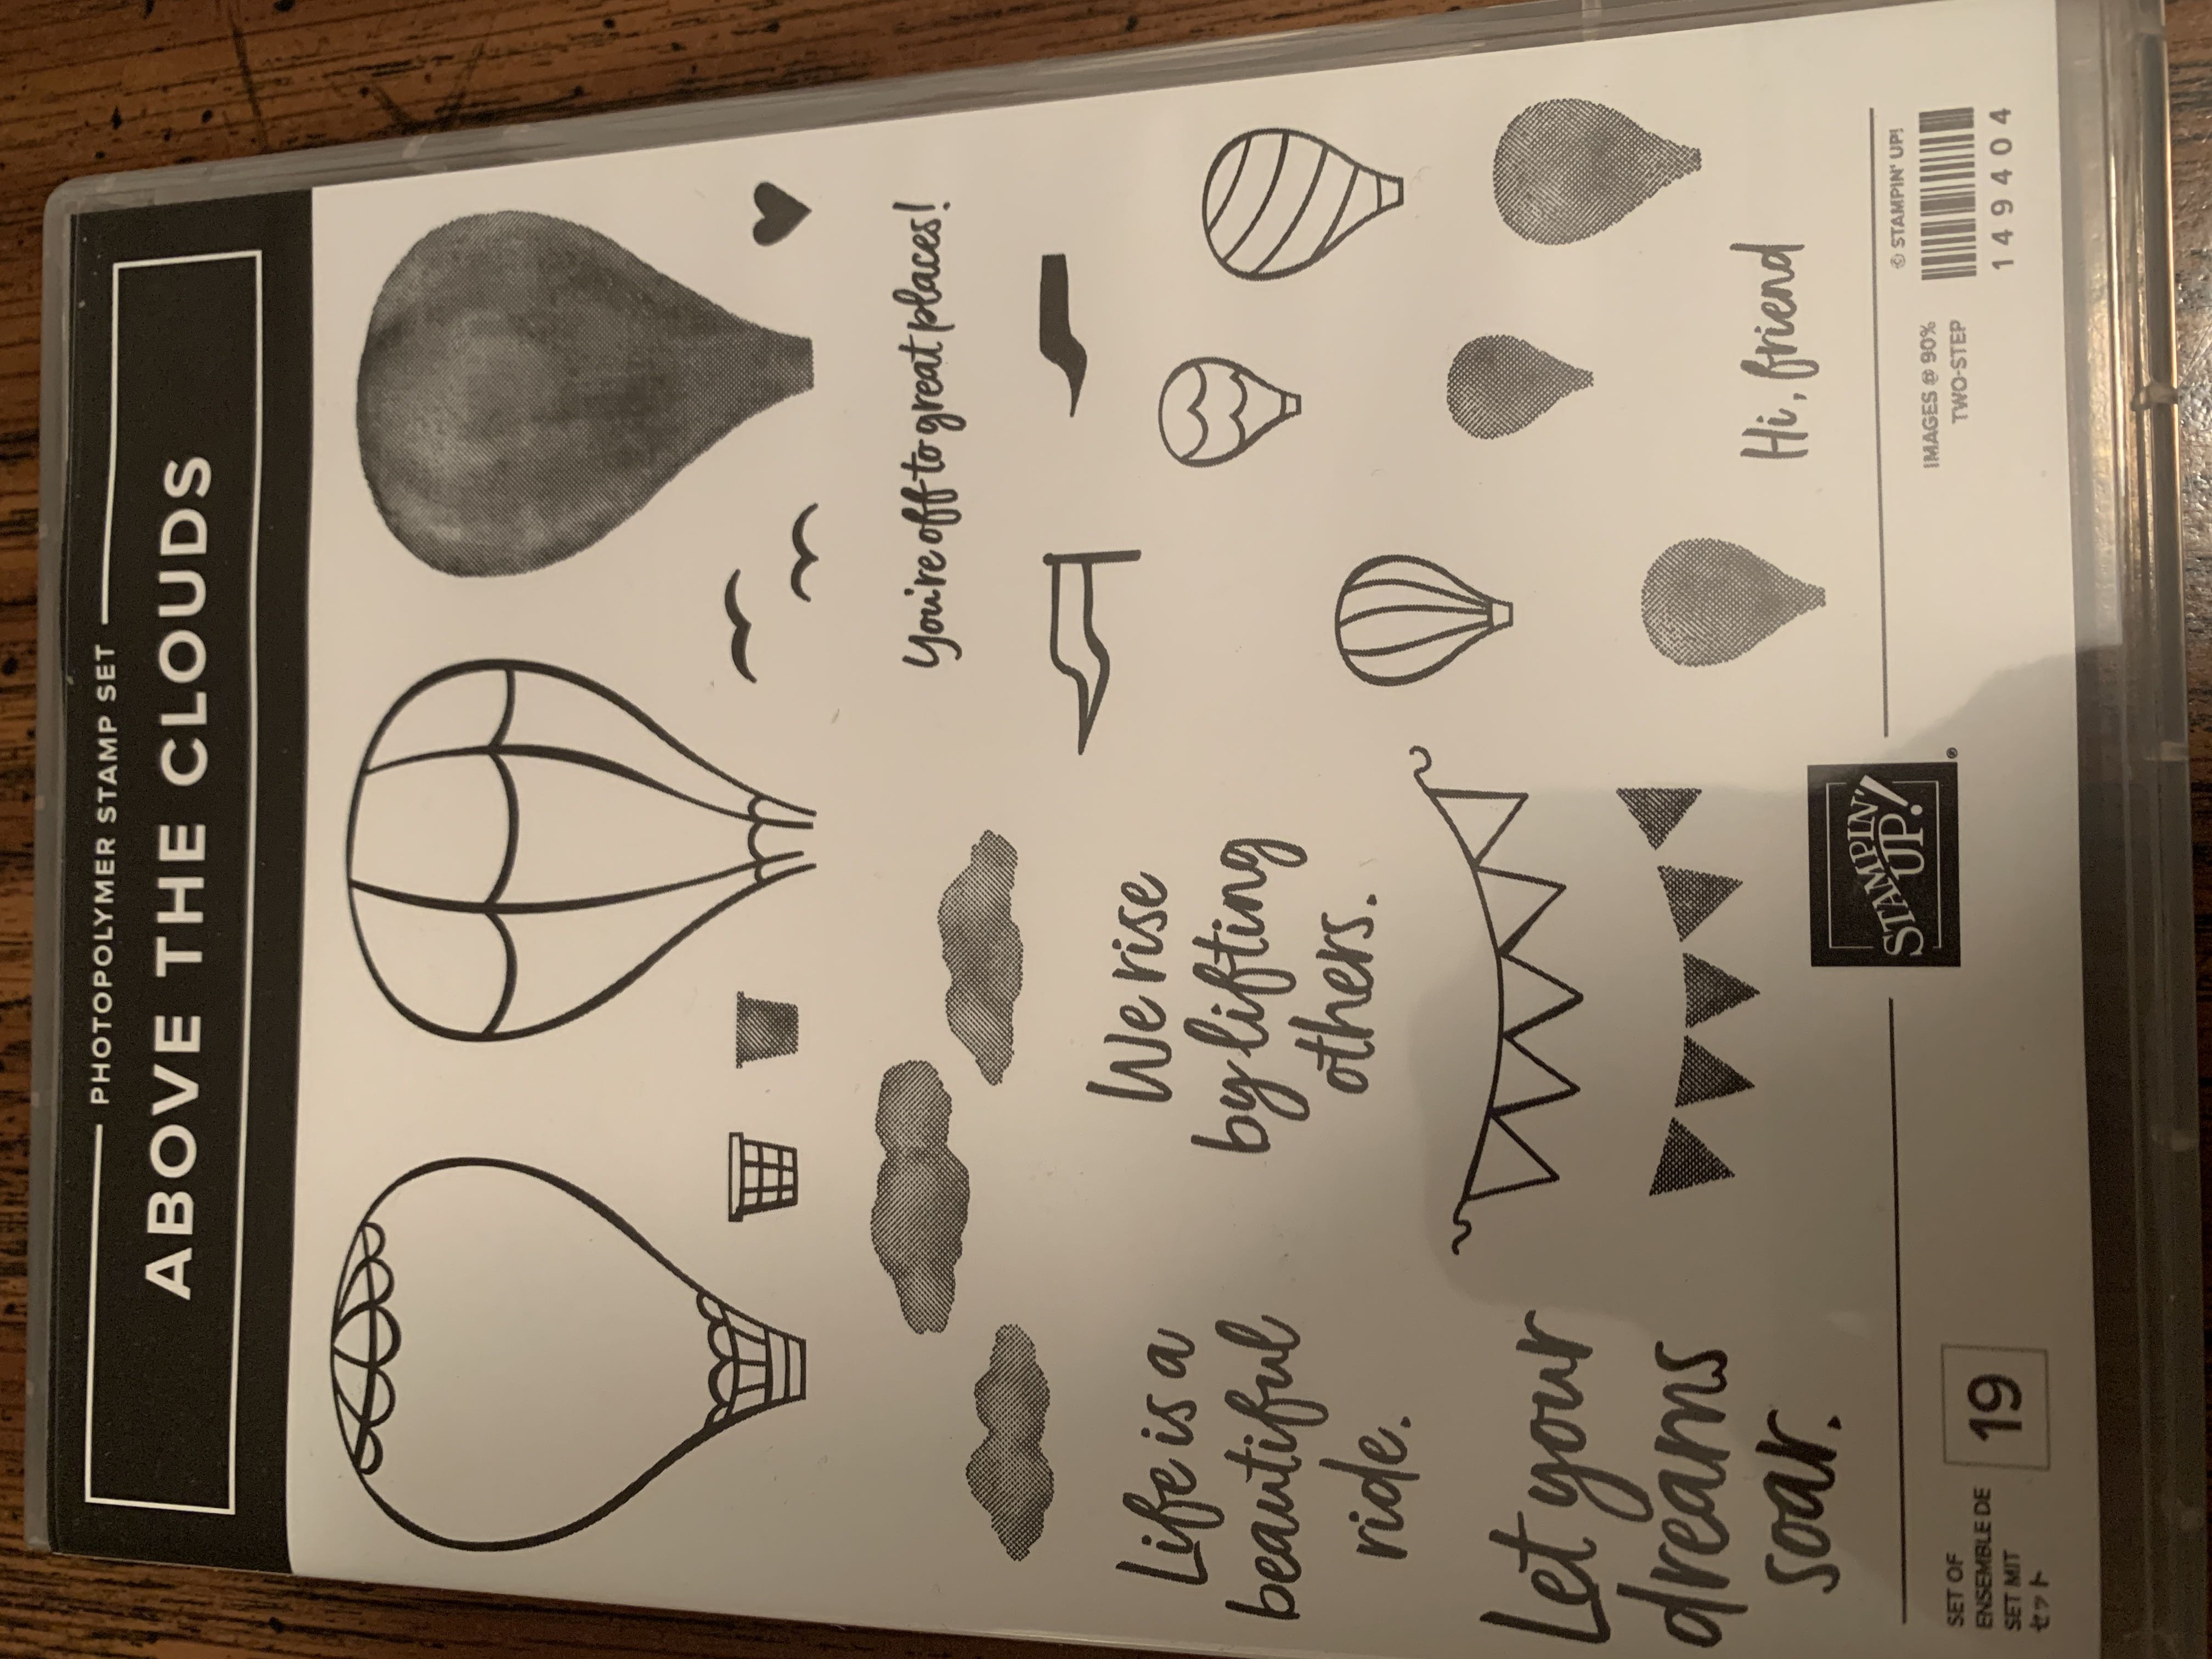 PHOTOPOLYMER STAMP SET
ABOVE THE CLOUDS
You're off to great places!
Life is a
beautiful
ride.
We rise
by lifting
others.
Let your
dreams
soar.
Hi, friend
SET OF
ENSEMBLE DE
SET MIT
セット
19
STAMPIN'
UP!®
IMAGES @ 90%
TWO-STEP
© STAMPIN' UP!
149404